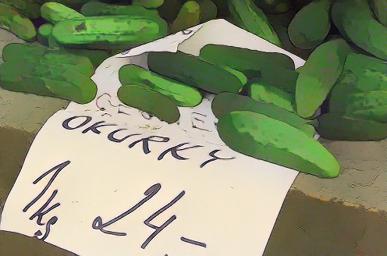 OKURKY
1kg 24,-